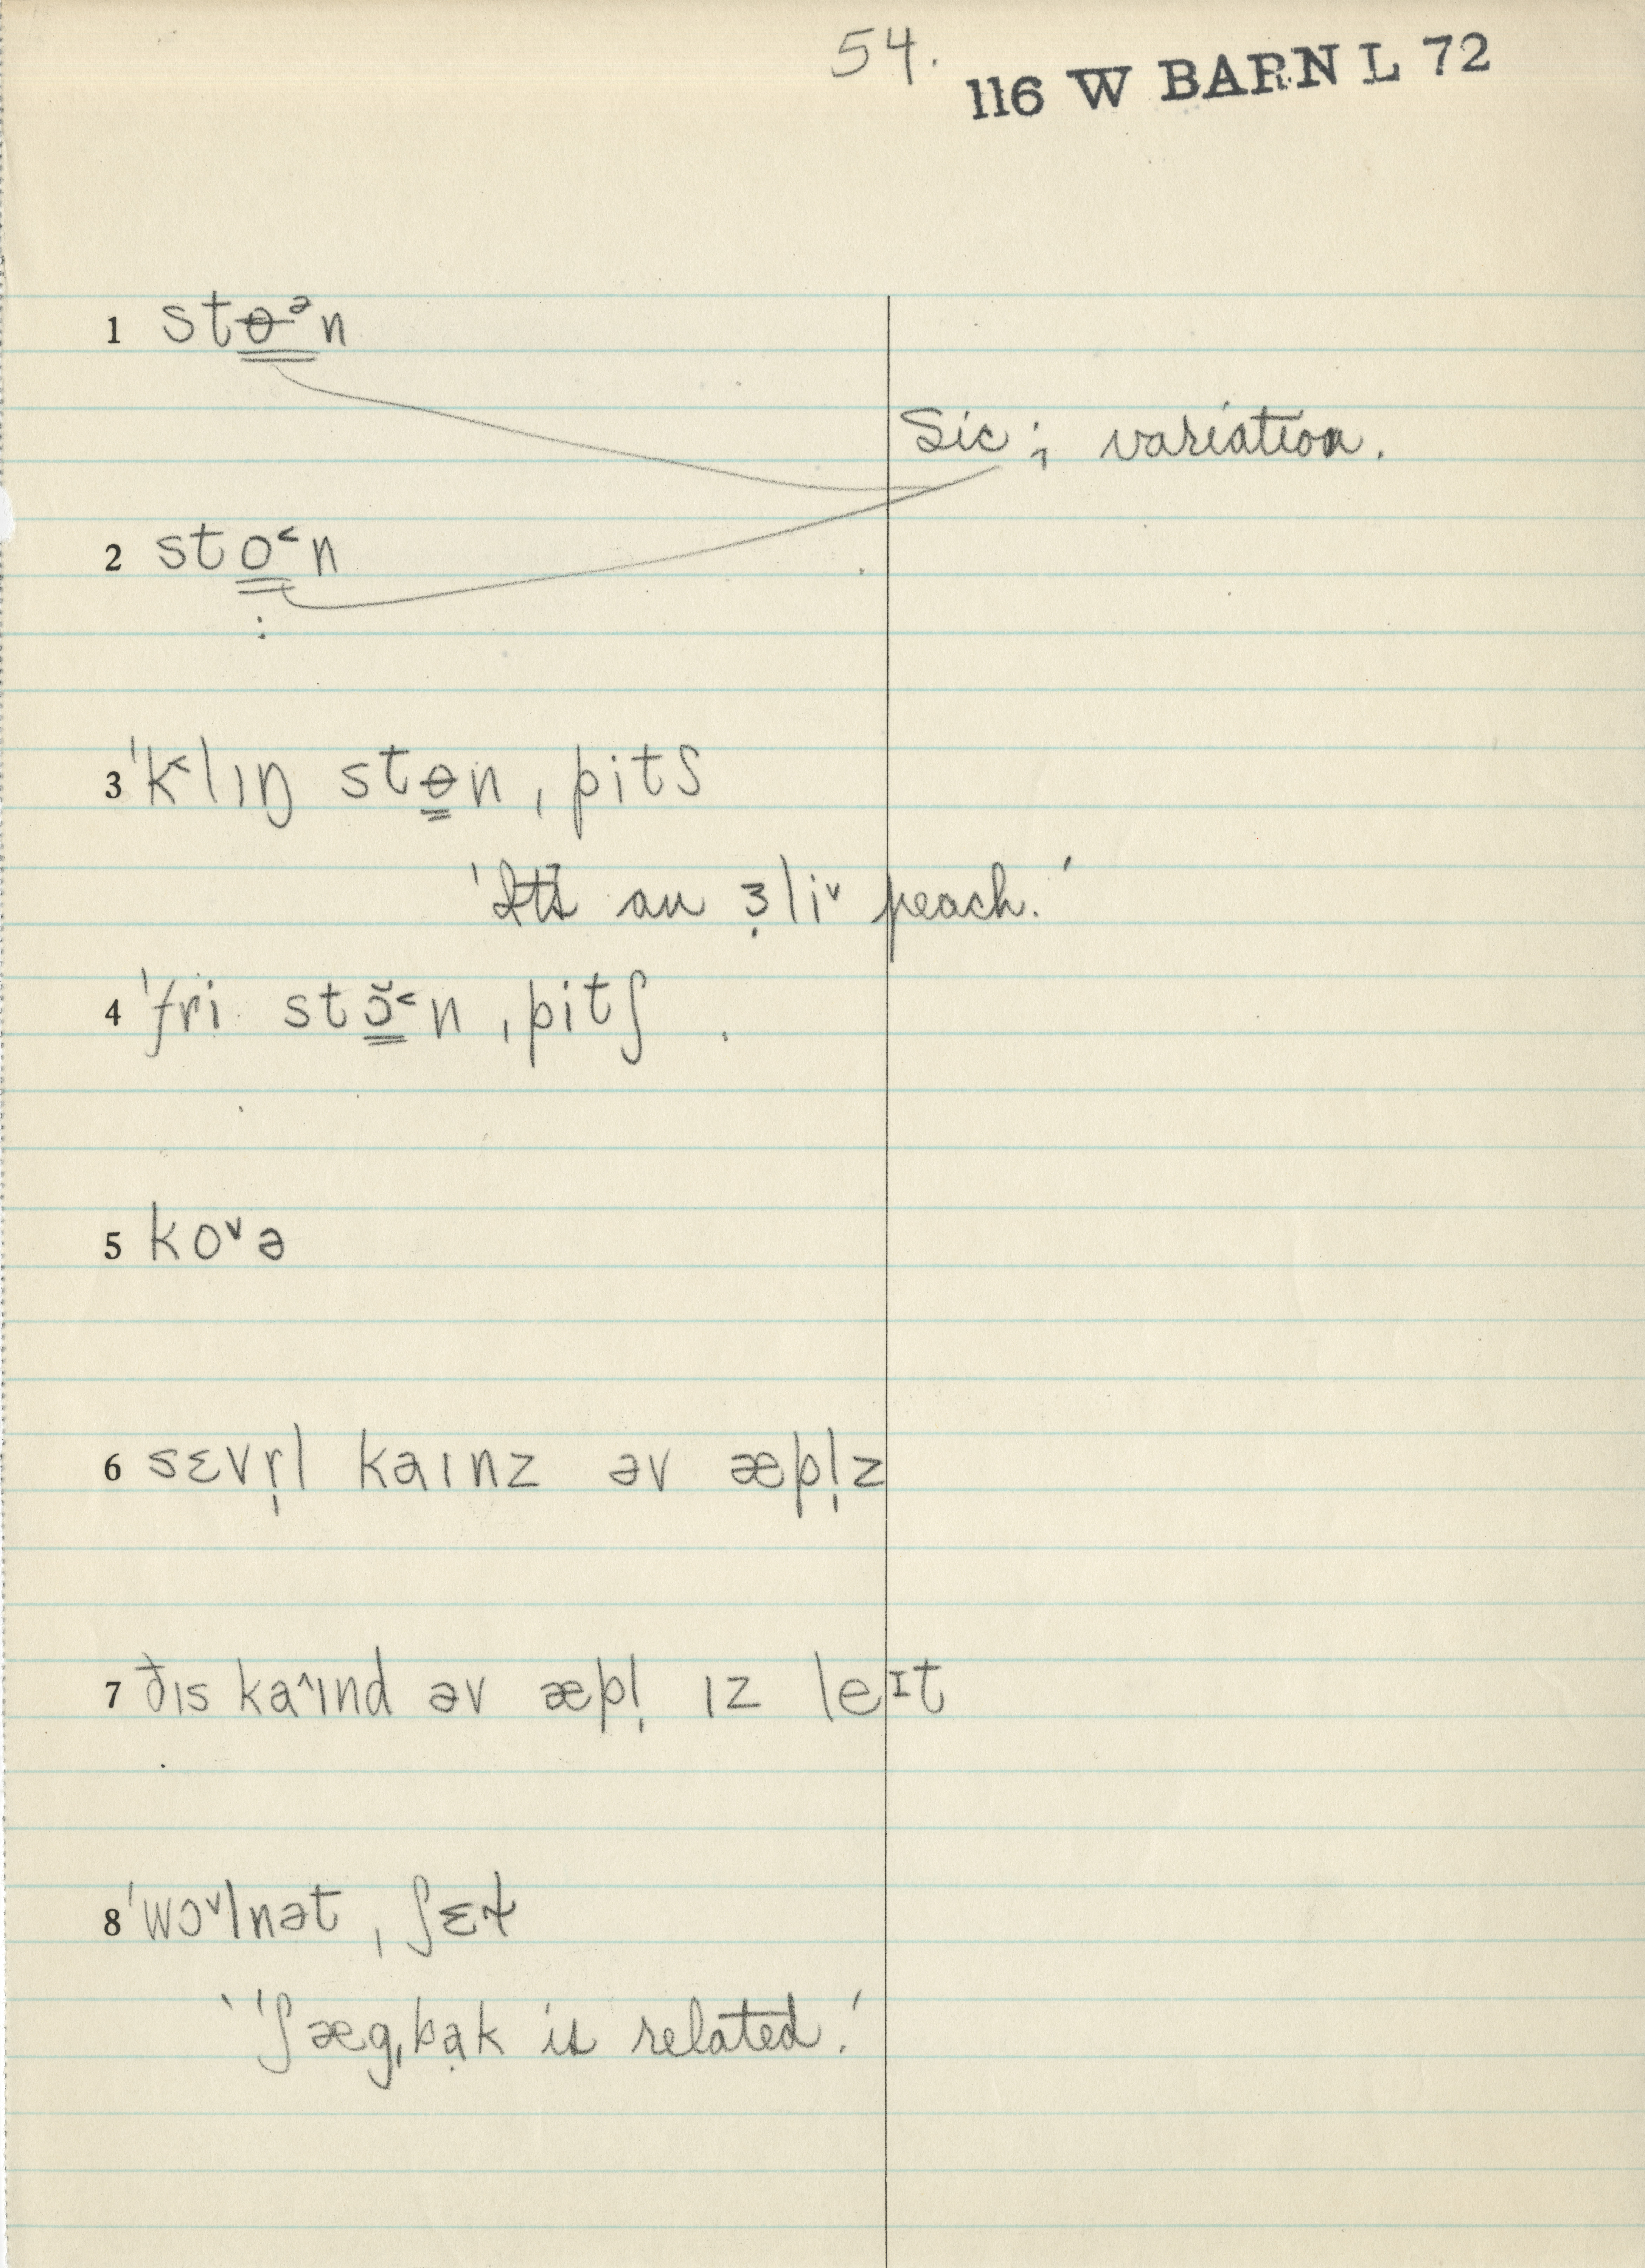 54.
116 W BARN L 72
1 stɵᵊn
Sic; variation.
2 sto˂n
:
3 ˈk˂lıŋ stɵn ˌpitʃ
'It's an ɜ̣li˅ peach.'
4 ˈfri stɔ̆˂n ˌpitʃ .
5 ko˅ə
6 sɛvr̩l kaınz əv æpl̩z
7 ðıs ka˄ınd əv æpl̩ ız leɪt
8 ˈwɔ˅lnət ˌʃɛɫ
'ˈʃægˌbạk is related.'